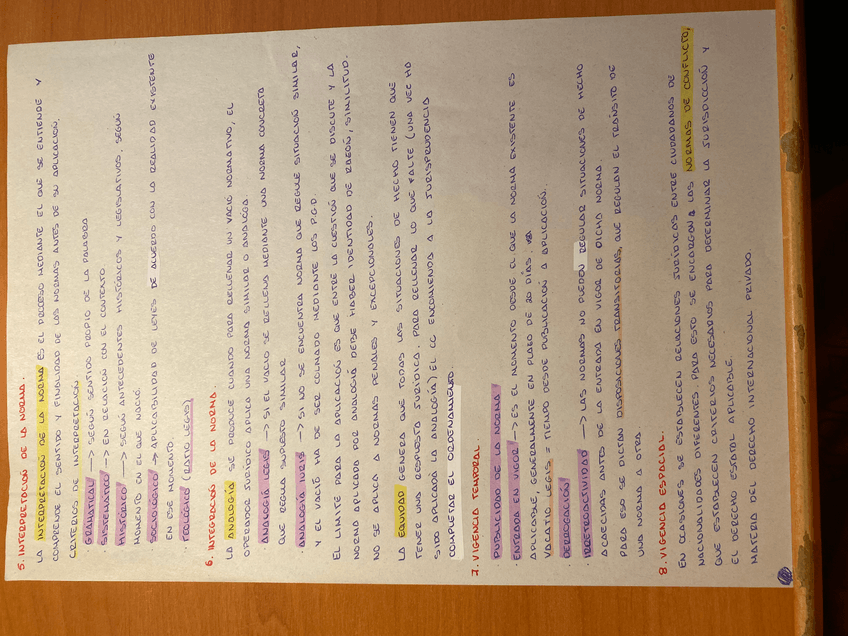 5. INTERPRETACIÓN DE LA NORMA.
LA INTERPRETACIÓN DE LA NORMA ES EL PROCESO MEDIANTE EL QUE SE ENTIENDE Y
COMPRENDE EL SENTIDO Y FINALIDAD DE LAS NORMAS ANTES DE SU APLICACIÓN.
CRITERIOS DE INTERPRETACIÓN
GRAMATICAL —> SEGÚN SENTIDO PROPIO DE LA PALABRA
SISTEMÁTICO —> EN RELACIÓN CON EL CONTEXTO
HISTÓRICO —> SEGÚN ANTECEDENTES HISTÓRICOS Y LEGISLATIVOS. SEGÚN
MOMENTO EN EL QUE NACIÓ.
SOCIOLÓGICO —> APLICABILIDAD DE LEYES DE ACUERDO CON LA REALIDAD EXISTENTE
EN ESE MOMENTO.
· TEOLÓGICO (RATIO LEGIS)
6. INTEGRACIÓN DE LA NORMA.
LA ANALOGÍA SE PRODUCE CUANDO PARA RELLENAR UN VACIO NORMATIVO, EL
OPERADOR JURÍDICO APLICA UNA NORMA SIMILAR O ANÁLOGA
· ANALOGÍA LEGIS —> SI EL VACIO SE RELLENA MEDIANTE UNA NORMA CONCRETA
QUE REGULA SUPUESTO SIMILAR
· ANALOGIA IURIS —> SI NO SE ENCUENTRA NORMA QUE REGULE SITUACIÓN SIMILAR,
Y EL VACIÓ HA DE SER COLMADO MEDIANTE LOS P.G.D.
EL LIMITE PARA LA APLICACIÓN ES QUE ENTRE LA CUESTIÓN QUE SE DISCUTE Y LA
NORMA APLICADA POR ANALOGÍA DEBE HABER IDENTIDAD DE RAZÓN, SIMILITUD.
NO SE APLICA A NORMAS PENALES Y EXCEPCIONALES.
LA EQUIDAD GENERA QUE TODAS LAS SITUACIONES DE HECHO TIENEN QUE
TENER UNA RESPUESTA JURÍDICA. PARA RELLENAR LO QUE FALTE (UNA VEZ HA
SIDO APLICADA LA ANALOGÍA) EL CC ENCOMIENDA A LA JURISPRUDENCIA
COMPLETAR EL ORDENAMIENTO.
7. VIGENCIA TEMPORAL.
PUBLICIDAD DE LA NORMA
· ENTRADA EN VIGOR —> ES EL MOMENTO DESDE EL QUE LA NORMA EXISTENTE ES
APLICABLE, GENERALMENTE EN PLAZO DE 20 DIAS.
VACATIO LEGIS = TIEMPO DESDE PUBLICACIÓN A APLICACIÓN.
· DEROGACIÓN
· IRRETROACTIVIDAD —> LAS NORMAS NO PUEDEN REGULAR SITUACIONES DE HECHO
ACAECIDAS ANTES DE LA ENTRADA EN VIGOR DE DICHA NORMA.
PARA ESO SE DICTAN DISPOSICIONES TRANSITORIAS, QUE REGULAN EL TRÁNSITO DE
UNA NORMA A OTRA.
8. VIGENCIA ESPACIAL.
EN OCASIONES SE ESTABLECEN RELACIONES JURÍDICAS ENTRE CIUDADANOS DE
NACIONALIDADES DIFERENTES. PARA ESTO SE ENCARGAN LAS NORMAS DE CONFLICTO,
QUE ESTABLECEN CRITERIOS NECESARIOS PARA DETERMINAR LA JURISDICCIÓN Y
EL DERECHO ESTATAL APLICABLE.
MATERIA DEL DERECHO INTERNACIONAL PRIVADO.